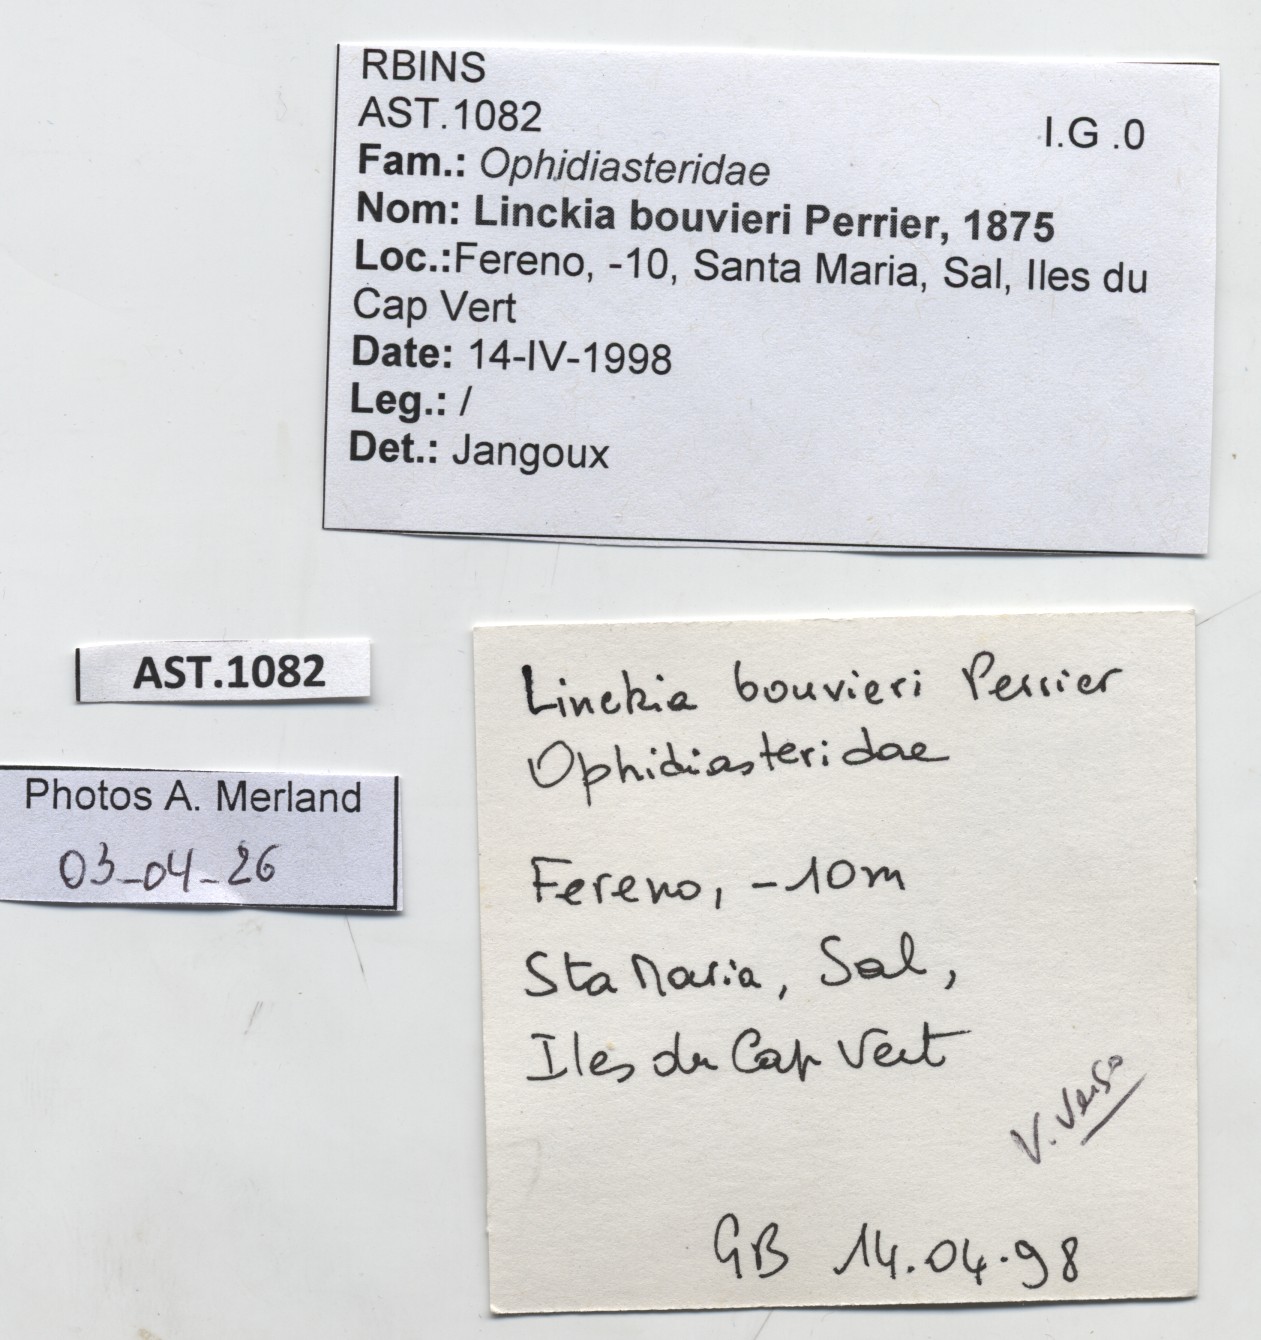 RBINS
AST.1082
I.G .0
Fam.: Ophidiasteridae
Nom: Linckia bouvieri Perrier, 1875
Loc.:Fereno, -10, Santa Maria, Sal, Iles du
Cap Vert
Date: 14-IV-1998
Leg.: /
Det.: Jangoux
AST.1082
Photos A. Merland
03-04-26
Linckia bouvieri Perrier
Ophidiasteridae
Fereno, -10m
Sta Maria, Sal,
Iles du Cap Vert
V. Verso
GB 14.04.98